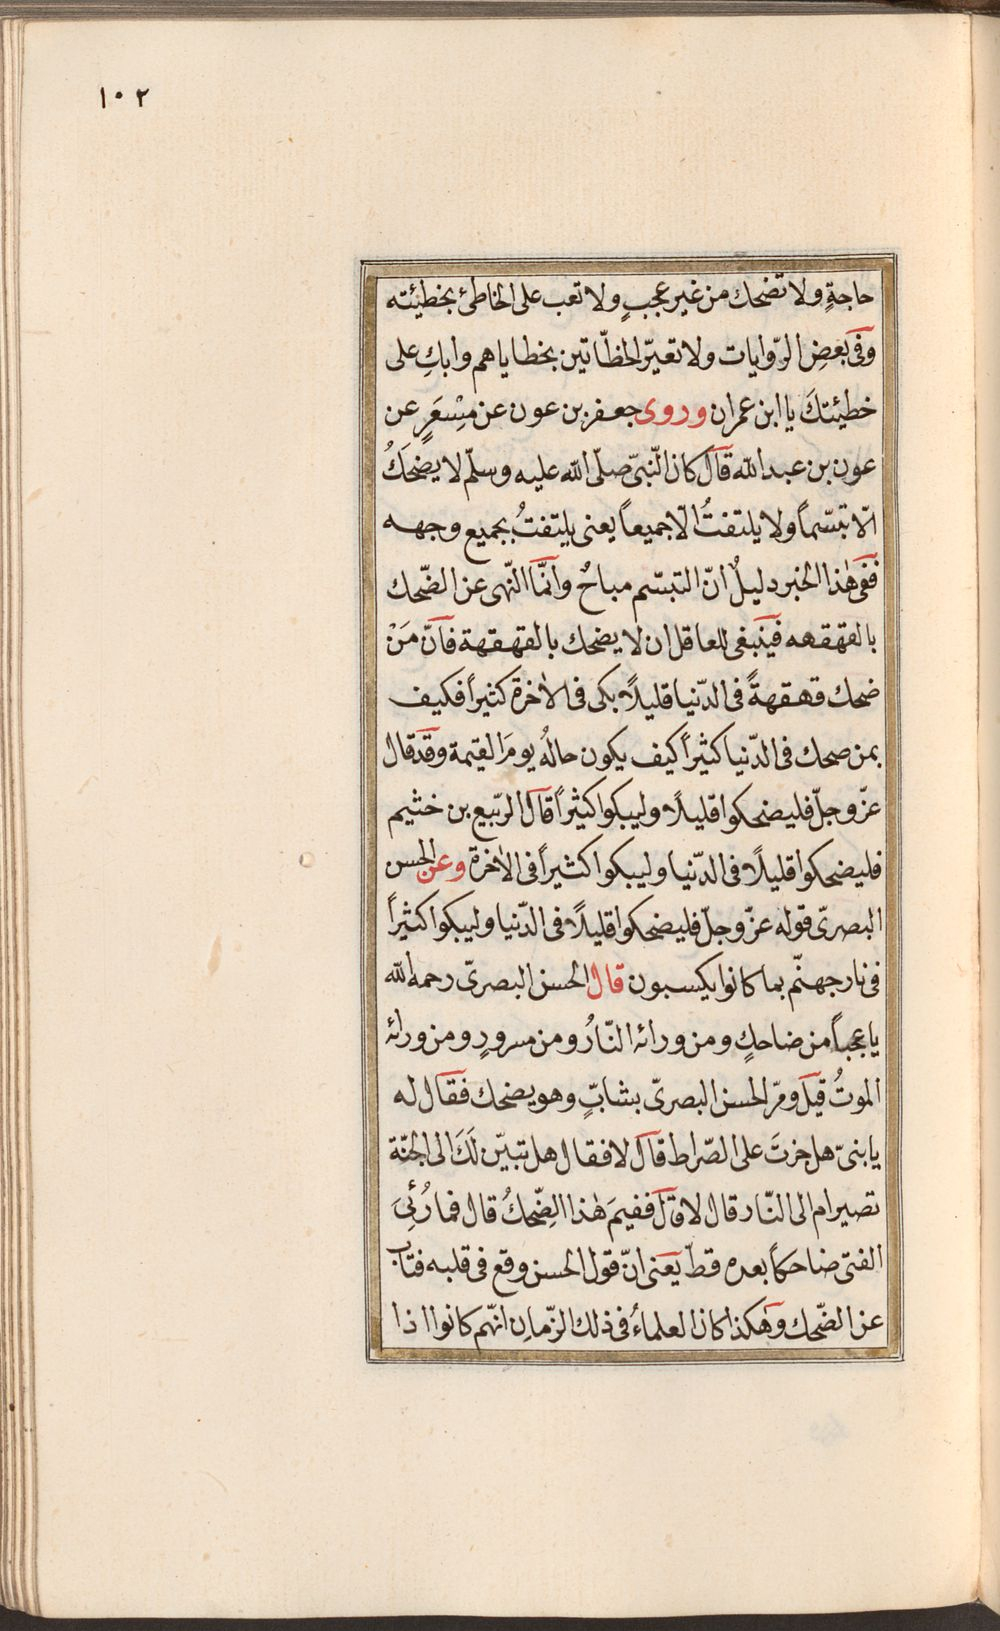 ١٠٢
حاجةٍ ولا تضحك من غير عجبٍ ولا تعب على الخاطئ بخطيئته
وفى بعضِ الرّوايات ولا تعيّر الخطّائين بخطاياهم وابكِ على
خطيئتكَ يا ابن عمران وروى جعفر بن عون عن مِسْعَرٍ عن
عون بن عبد الله قال كان النّبىّ صلّى الله عليه وسلّم لا يضحَكُ
الّا تبسّماً ولا يلتفتُ الّا جميعاً يعنى يلتفتُ بجميع وجهه
ففى هٰذا الخبر دليلٌ انّ التبسّم مباحٌ وانّما النّهى عن الضّحك
بالقهقهه فينبغى للعاقل ان لا يضحك بالقهقهة فانّ مَنْ
ضحك قهقهةً فى الدّنيا قليلًا بكى فى الاٰخرة كثيراً فكيف
بمن ضحك فى الدّنيا كثيراً كيف يكون حالُه يومَ القيٰمة وقد قال
عزّ وجلّ فليضحكوا قليلًا وليبكوا كثيراً قال الرّبيع بن خثيم
فليضحكوا قليلًا فى الدّنيا وليبكوا كثيراً فى الاٰخرة وعن الحسن
البصرىّ قوله عزّ وجلّ فليضحكوا قليلًا فى الدّنيا وليبكوا كثيراً
فى نار جهنّم بما كانوا يكسبون قال الحسن البصرىّ رحمه الله
يا عجباً من ضاحكٍ ومن ورائه النّارُ ومن مسرورٍ ومن ورائه
الموتُ قيل ومرّ الحسن البصرىّ بشابٍّ وهو يضحك فقال له
يا بنىّ هل جزتَ على الصّراط قال لا فقال هل تبيّن لَكَ الى الجنّة
تصير ام الى النّار قال لا قال ففيمَ هٰذا الضِّحكُ قال فما رُئِىَ
الفتى ضاحكاً بعده قطّ يعنى انّ قول الحسن وقع فى قلبه فتاب
عن الضّحك وهكذا كان العلماءُ فى ذلك الزّمانِ انّهم كانوا اذا